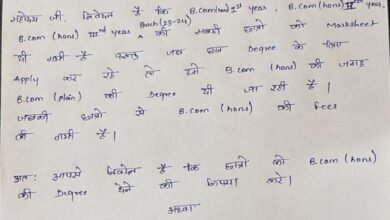 महोदय जी, निवेदन है कि B.Com(hon) Ist year, B.Com (hons) IInd year,
B.Com (hons) IIIrd year Bach (23-24) की सभी छात्रों को Marksheet
दी गयी है परन्तु जब छात्र Degree के लिए
Apply कर रहे तो हमें B.Com (hons) की जगह
B.Com (plain) की Degree दी जा रही है।
जबकी छात्रों से B.Com (hons) की fees
ली गयी है।
अतः आपसे निवेदन है कि छात्रों को B.Com (hons)
की Degree देने की क्रिपया करें।
अथवा